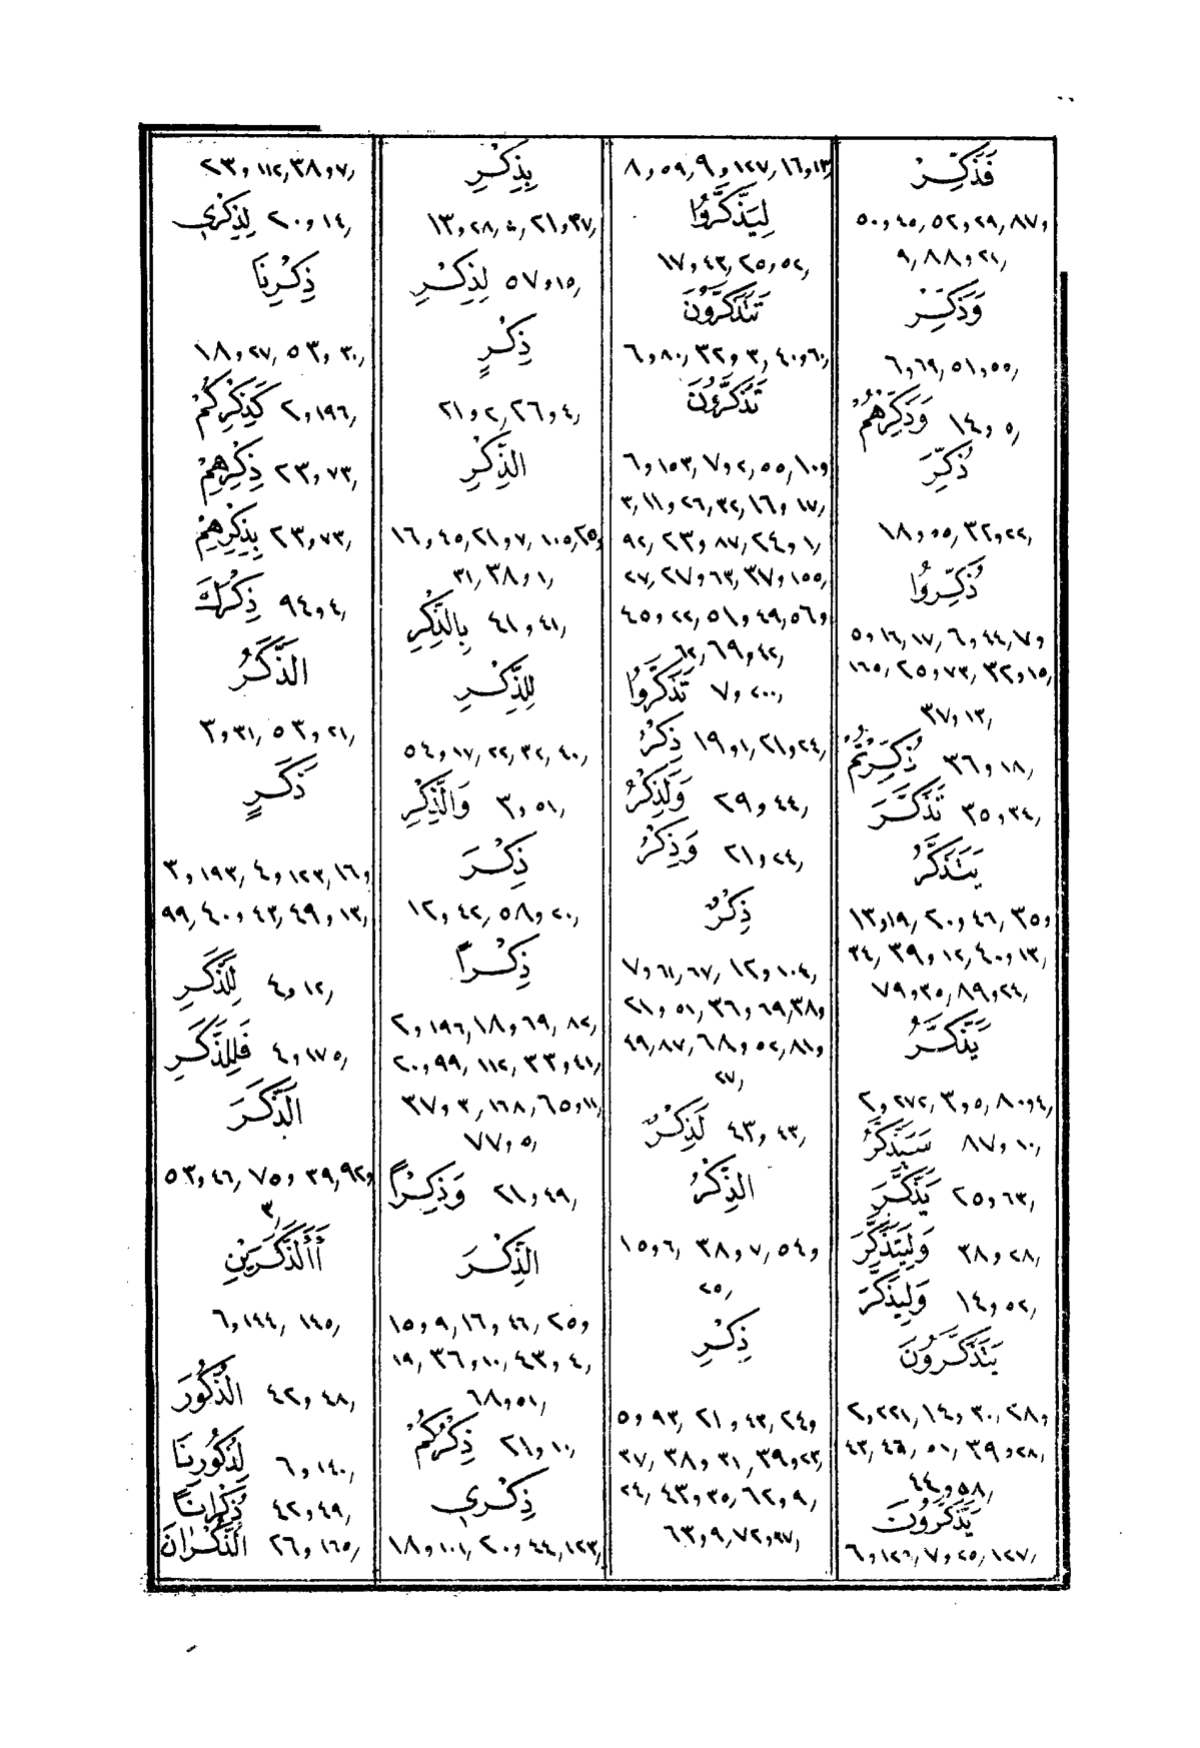 فَذَكِّرْ
٥٠و٤٥٫ ٥٢و٢٩٫ ٨٧و
٩٫ ٨٨و٢١٫
وَذَكِّرْ
٦و٦٩٫ ٥١و٥٥٫
وَذَكِّرْهُمْ ١٤و٥٫
ذُكِّرَ
١٨و٥٥٫ ٣٢و٢٢٫
ذُكِّرُوا
٥و١٦٫ ١٧٫ ٦و٤٤٫ ٧و
١٦٥٫ ٢٥و٧٣٫ ٣٢و١٥٫
٣٧و١٣٫
ذُكِّرْتُمْ ٣٦و١٨٫
تَذَكَّرَ ٣٥و٣٤٫
يَتَذَكَّرُ
١٣و١٩٫ ٢٠و٤٦٫ ٣٥و
٣٤٫ ٣٩و١٢٫ ٤٠و١٣٫
٧٩و٣٥٫ ٨٩و٢٤٫
يَذَّكَّرُ
٢و٢٧٢٫ ٣و٥٫ ٨٠و٤٫
سَيَذَّكَّرُ ٨٧و١٠٫
يَذَّكَّرَ ٢٥و٦٣٫
وَلِيَتَذَكَّرَ ٣٨و٢٨٫
وَلِيَذَّكَّرَ ١٤و٥٢٫
يَتَذَكَّرُونَ
٢و٢٢١٫ ١٤و٣٠٫ ٢٨و
٤٣٫ ٤٦٫ ٥١٫ ٣٩و٢٨٫
٤٤و٥٨٫
يَذَّكَّرُونَ
٦و١٢٦٫ ٧و٢٥٫ ١٢٧٫
٨و٥٩٫ ٩و١٢٧٫ ١٦و١٣٫
لِيَذَّكَّرُوا
١٧و٤٣٫ ٢٥و٥٢٫
تَتَذَكَّرُونَ
٦و٨٠٫ ٣٢و٣٫ ٤٠و٦٠٫
تَذَكَّرُونَ
٦و١٥٣٫ ٧و٢٫ ٥٥٫ ١٠و
٣٫ ١١و٢٦٫ ٣٢٫ ١٦و١٧٫
٩٢٫ ٢٣و٨٧٫ ٢٤و١٫
٢٧٫ ٢٧و٦٣٫ ٣٧و١٥٥٫
٤٥و٢٢٫ ٥١و٤٩٫ ٥٦و
٦٢٫ ٦٩و٤٢٫
تَذَكَّرُوا ٧و٢٠٠٫
ذِكْرُ ١٩و١٫ ٢١و٢٤٫
وَلَذِكْرُ ٢٩و٤٤٫
وَذِكْرُ ٢١و٢٤٫
ذِكْرٌ
٧و٦١٫ ٦٧٫ ١٢و١٠٤٫
٢١و٥١٫ ٣٦و٦٩٫ ٣٨و
٤٩٫ ٨٧٫ ٦٨و٥٢٫ ٨١و
٢٧٫
لَذِكْرٌ ٤٣و٤٣٫
الذِّكْرُ
١٥و٦٫ ٣٨و٧٫ ٥٤و
٢٥٫
ذِكْرِ
٥و٩٣٫ ٢١و٤٣٫ ٢٤و
٣٧٫ ٣٨و٣١٫ ٣٩و٢٣٫
٢٤٫ ٤٣و٣٥٫ ٦٢و٩٫
٦٣و٩٫ ٧٢و٩٧٫
بِذِكْرِ
١٣و٢٨٫ ٢١و٣٧٫
لِذِكْرِ ٥٧و١٥٫
ذِكْرٍ
٢١و٢٫ ٢٦و٤٫
الذِّكْرِ
١٦و٤٥٫ ٢١و٧٫ ١٠٥٫ ٢٥و
٣١٫ ٣٨و١٫
بِالذِّكْرِ ٤١و٤١٫
لِلذِّكْرِ
٥٤و١٧٫ ٢٢٫ ٣٢٫ ٤٠٫
وَالذِّكْرِ ٣و٥١٫
ذِكْرَ
١٢و٤٢٫ ٥٨و٢٠٫
ذِكْراً
٢و١٩٦٫ ١٨و٦٩٫ ٨٢٫
٢٠و٩٩٫ ١١٢٫ ٣٣و٤١٫
٣٧و٣٫ ١٦٨٫ ٦٥و١١٫
٧٧و٥٫
وَذِكْراً ٢١و٤٩٫
الذِّكْرَ
١٥و٩٫ ١٦و٤٦٫ ٢٥و
١٩٫ ٣٦و١٠٫ ٤٣و٤٫
٦٨و٥١٫
ذِكْرُكُمْ ٢١و١٠٫
ذِكْرِي
١٨و١٠١٫ ٢٠و٤٤٫ ١٢٣٫
٢٣و١١٢٫ ٣٨و٧٫
لِذِكْرِي ٢٠و١٤٫
ذِكْرِنَا
١٨و٢٧٫ ٥٣و٣٠٫
كَذِكْرِكُمْ ٢و١٩٦٫
ذِكْرِهِمْ ٢٣و٧٣٫
بِذِكْرِهِمْ ٢٣و٧٣٫
ذِكْرَكَ ٩٤و٤٫
الذَّكَرُ
٣و٣١٫ ٥٣و٢١٫
ذَكَرٍ
٣و١٩٣٫ ٤و١٢٣٫ ١٦و
٩٩٫ ٤٠و٤٣٫ ٤٩و١٣٫
لِلذَّكَرِ ٤و١٢٫
فَلِلذَّكَرِ ٤و١٧٥٫
الذَّكَرَ
٥٣و٤٦٫ ٧٥و٣٩٫ ٩٢و
٣٫
أَالذَّكَرَيْنِ
٦و١٤٤٫ ١٤٥٫
الذُّكُورَ ٤٢و٤٨٫
لِذُكُورِنَا ٦و١٤٠٫
ذُكْرَاناً ٤٢و٤٩٫
الذُّكْرَانَ ٢٦و١٦٥٫